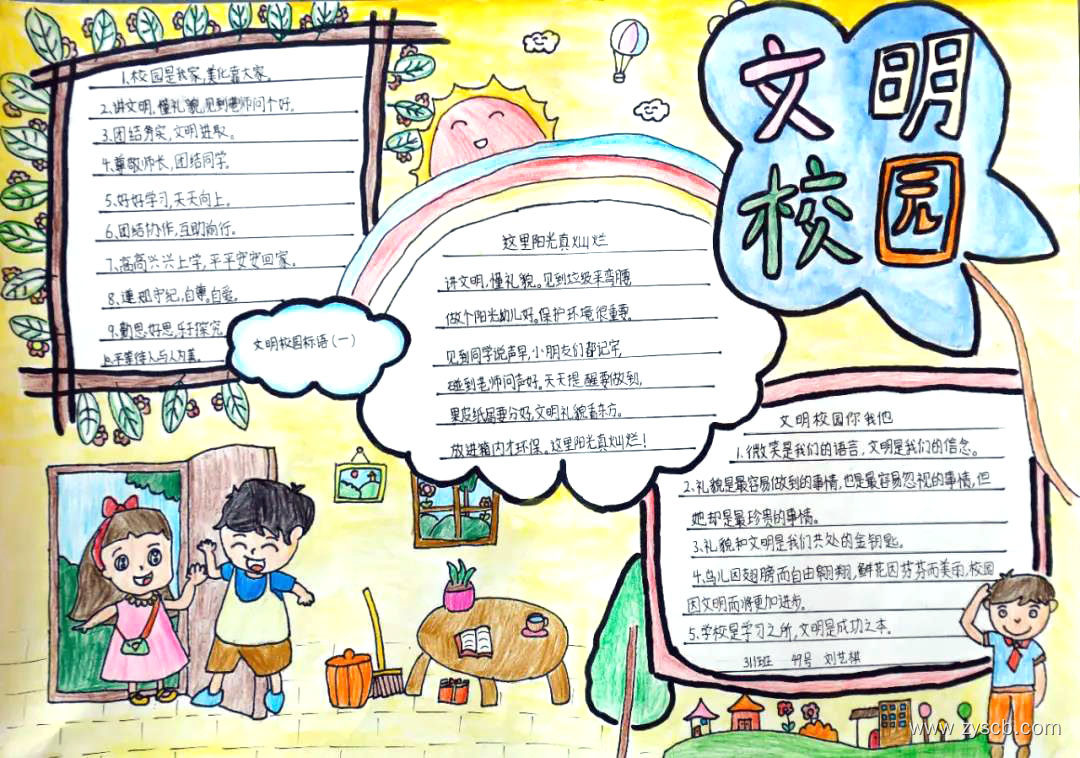 文明
校园
1.校园是我家,美化靠大家。
2.讲文明,懂礼貌,见到老师问个好。
3.团结务实,文明进取。
4.尊敬师长,团结同学。
5.好好学习,天天向上。
6.团结协作,互助前行。
7.高高兴兴上学,平平安安回家。
8.遵规守纪,自尊自爱。
9.勤思好思,乐于探究
上平等待人与人为善。
文明校园标语(一)
这里阳光真灿烂
讲文明,懂礼貌。见到垃圾来弯腰
做个阳光幼儿好。保护环境很重要。
见到同学说声早,小朋友们都记牢,
碰到老师问声好。天天提醒要做到,
果皮纸屑要分好,文明礼貌看东方。
放进箱内才环保。这里阳光真灿烂!
文明校园你我他
1.微笑是我们的语言,文明是我们的信念。
2.礼貌是最容易做到的事情,也是最容易忽视的事情,但
她却是最珍贵的事情。
3.礼貌和文明是我们共处的金钥匙。
4.鸟儿因翅膀而自由翱翔,鲜花因芬芳而美丽,校园
因文明而将更加进步。
5.学校是学习之所,文明是成功之本。
311班 49号 刘艺祺
www.zyscb.com